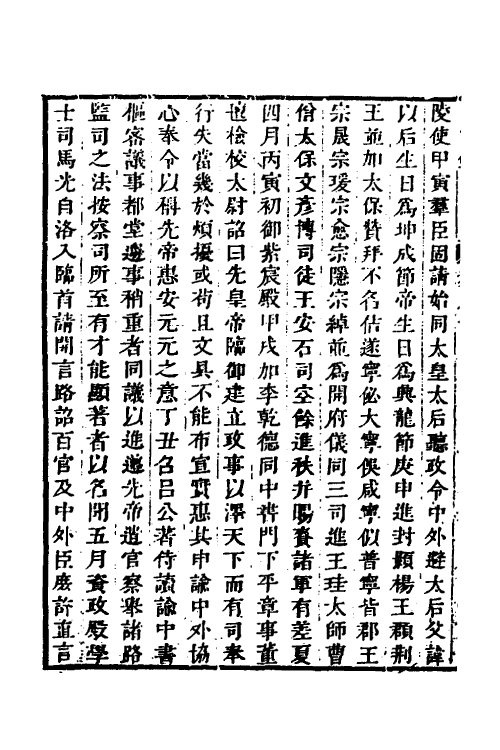 陵使甲寅羣臣固請始同太皇太后聽政令中外避太后父諱
以后生日爲坤成節帝生日爲興龍節庚申進封顥楊王頵荆
王並加太保贊拜不名佶遂寧佖大寧俁咸寧似普寧皆郡王
宗晟宗瑗宗愈宗隱宗綽並爲開府儀同三司進王珪太師曹
佾太保文彥博司徒王安石司空餘進秩幷賜賚諸軍有差夏
四月丙寅初御紫宸殿甲戌加李乾德同中書門下平章事董
氊檢校太尉詔曰先皇帝臨御建立政事以澤天下而有司奉
行失當幾於煩擾或苟且文具不能布宣實惠其申諭中外協
心奉令以稱先帝惠安元元之意丁丑召呂公著侍讀諭中書
樞密議事都堂邊事稍重者同議以進遵先帝遺官察舉諸路
監司之法按察司所至有才能顯著者以名聞五月資政殿學
士司馬光自洛入臨首請開言路詔百官及中外臣庶許直言